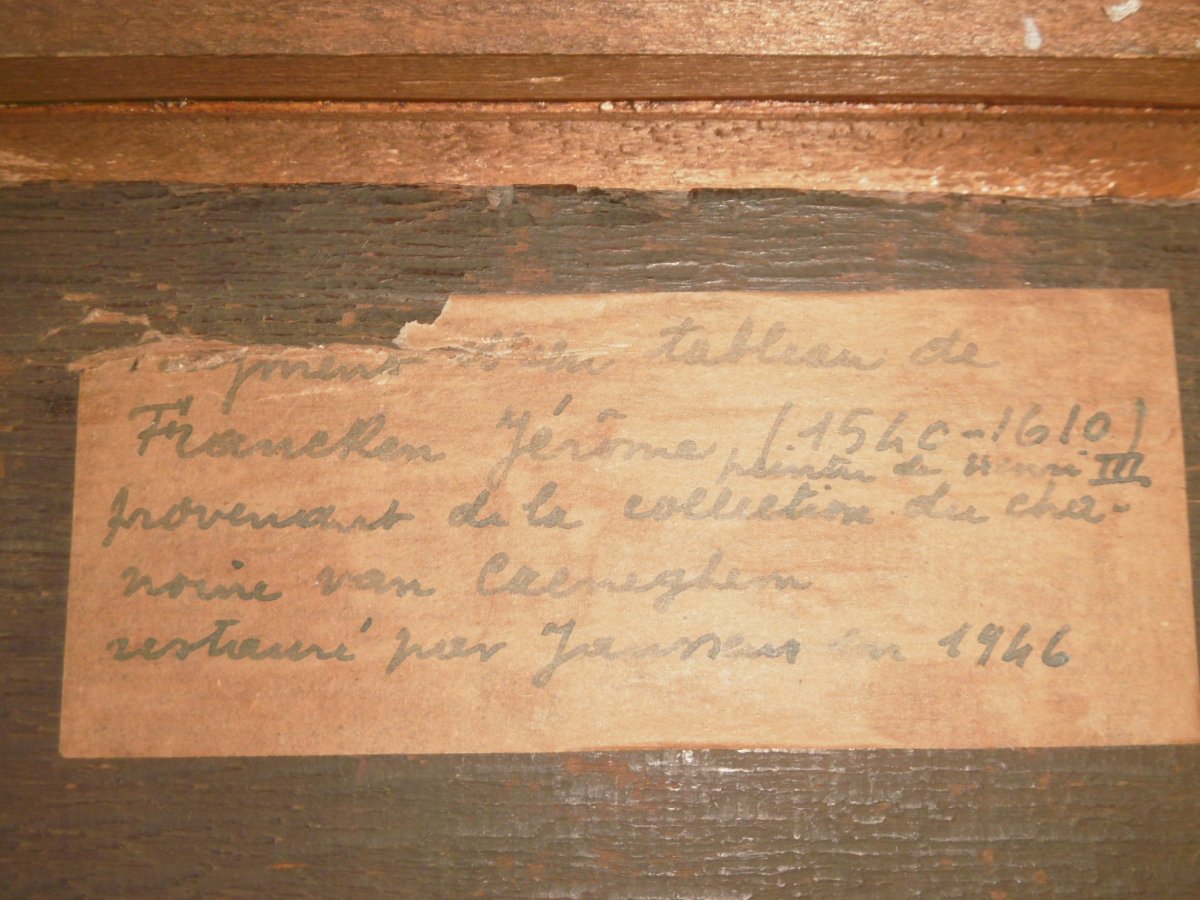 Fragment d'un tableau de
Francken Jérôme (1540-1610)
peintre de Henri III
provenant de la collection du cha-
noine van Caeneghem
restauré par Janssens en 1946